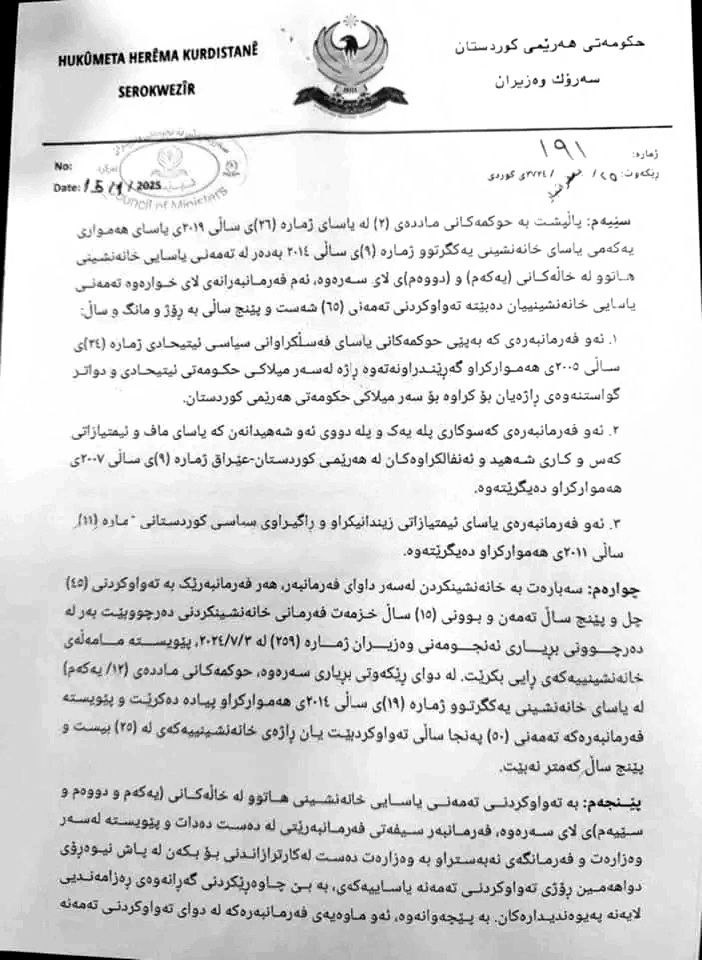 HUKÛMETA HERÊMA KURDISTANÊ
SEROKWEZÎR
حکومەتی هەرێمی کوردستان
سەرۆک وەزیران
No:
Date: 15/1/2025
Council of Ministers
ژمارە: ١٩١
ڕێکەوت: ٢٥/ /٢٧٢٤ی کوردی
سێیەم: پاڵپشت بە حوکمەکانی ماددەی (٢) لە یاسای ژمارە (٢٦)ی ساڵی ٢٠١٩ی یاسای هەمواری
یەکەمی یاسای خانەنشینی یەکگرتوو ژمارە (٩)ی ساڵی ٢٠١٤ بەدەر لە تەمەنی یاسایی خانەنشینی
هاتوو لە خاڵەکانی (یەکەم) و (دووەم)ی لای سەرەوە، ئەم فەرمانبەرانەی لای خوارەوە تەمەنی
یاسایی خانەنشینییان دەبێتە تەواوکردنی تەمەنی (٦٥) شەست و پێنج ساڵی بە ڕۆژ و مانگ و ساڵ:
١. ئەو فەرمانبەرەی کە بەپێی حوکمەکانی یاسای فەسڵکراوانی سیاسی ئیتیحادی ژمارە (٢٤)ی
ساڵی ٢٠٠٥ی هەموارکراو گەڕێندراونەتەوە ڕاژە لەسەر میلاکی حکومەتی ئیتیحادی و دواتر
گواستنەوەی ڕاژەیان بۆ کراوە بۆ سەر میلاکی حکومەتی هەرێمی کوردستان.
٢. ئەو فەرمانبەرەی کەسوکاری پلە یەک و پلە دووی ئەو شەهیدانەن کە یاسای ماف و ئیمتیازاتی
کەس و کاری شەهید و ئەنفالکراوەکان لە هەرێمی کوردستان-عێراق ژمارە (٩)ی ساڵی ٢٠٠٧ی
هەموارکراو دەیگرێتەوە.
٣. ئەو فەرمانبەرەی یاسای ئیمتیازاتی زیندانیکراو و ڕاگیراوی سیاسی کوردستانی ژمارە (١١)ی
ساڵی ٢٠١١ی هەموارکراو دەیگرێتەوە.
چوارەم: سەبارەت بە خانەنشینکردن لەسەر داوای فەرمانبەر، هەر فەرمانبەرێک بە تەواوکردنی (٤٥)
چل و پێنج ساڵ تەمەن و بوونی (١٥) ساڵ خزمەت فەرمانی خانەنشینکردنی دەرچووبێت بەر لە
دەرچوونی بڕیاری ئەنجومەنی وەزیران ژمارە (٢٥٩) لە ٢٠٢٤/٧/٣، پێویستە مامەڵەی
خانەنشینییەکەی ڕایی بکرێت. لە دوای ڕێکەوتی بڕیاری سەرەوە، حوکمەکانی ماددەی (١٢/ یەکەم)
لە یاسای خانەنشینی یەکگرتوو ژمارە (١٩)ی ساڵی ٢٠١٤ی هەموارکراو پیادە دەکرێت و پێویستە
فەرمانبەرەکە تەمەنی (٥٠) پەنجا ساڵی تەواوکردبێت یان ڕاژەی خانەنشینییەکەی لە (٢٥) بیست و
پێنج ساڵ کەمتر نەبێت.
پێنجەم: بە تەواوکردنی تەمەنی یاسایی خانەنشینی هاتوو لە خاڵەکانی (یەکەم و دووەم و
سێیەم)ی لای سەرەوە، فەرمانبەر سیفەتی فەرمانبەرێتی لە دەست دەدات و پێویستە لەسەر
وەزارەت و فەرمانگەی نەبەستراو بە وەزارەت دەست لەکارترازاندنی بۆ بکەن لە پاش نیوەڕۆی
دواهەمین ڕۆژی تەواوکردنی تەمەنە یاساییەکەی، بە بێ چاوەڕێکردنی گەڕانەوەی ڕەزامەندیی
لایەنە پەیوەندیدارەکان. بە پێچەوانەوە، ئەو ماوەیەی فەرمانبەرەکە لە دوای تەواوکردنی تەمەنە